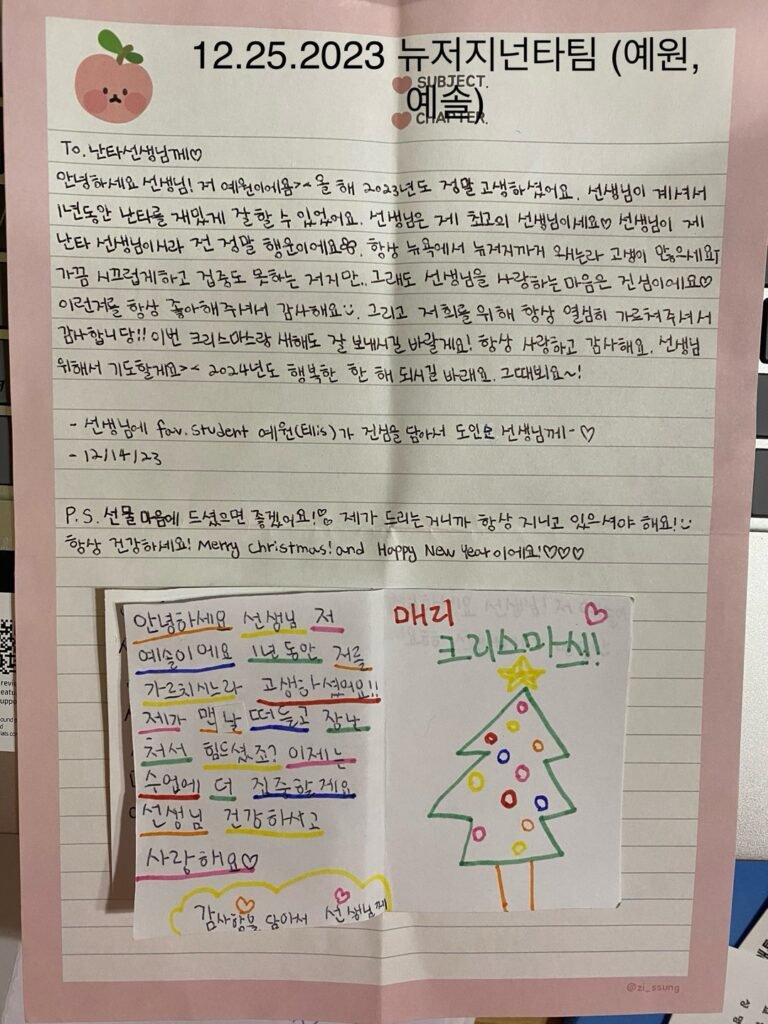 12.25.2023 뉴저지넌타팀 (예원,
예솔)
SUBJECT.
CHAPTER.
To. 난타선생님께♡
안녕하세요 선생님! 저 예원이에욤>< 올 해 2023년도 정말 고생하셨어요. 선생님이 계셔서
1년동안 난타를 재밌게 잘할 수 있었어요. 선생님은 제 최고의 선생님이세요♡ 선생님이 제
난타 선생님이시라 전 정말 행운이에요. 항상 뉴욕에서 뉴저지까지 오시는라 고생이 많으세요ㅜ
가끔 시끄럽게하고 집중도 못하는 저지만.. 그래도 선생님을 사랑하는 마음은 진심이에요♡
이런저를 항상 좋아해주셔서 감사해요. 그리고 저희를 위해 항상 열심히 가르쳐주셔서
감사합니당!! 이번 크리스마스랑 새해도 잘 보내시길 바랄게요! 항상 사랑하고 감사해요. 선생님
위해서 기도할게요>< 2024년도 행복한 한 해 되시길 바래요. 그때뵈요~!
- 선생님에 fav. student 예원(테리s)가 진심을 담아서 도인은 선생님께- ♡
- 12/14/23
P.S. 선물 마음에 드셨으면 좋겠어요! 제가 드리는거니까 항상 지니고 있으셔야 해요!
항상 건강하세요! Merry Christmas! and Happy New Year이에요!♡♡♡
안녕하세요 선생님 저
예솔이에요 1년동안 저를
가르치시느라 고생하셨어요!!
제가 맨날 떠들고 장난
쳐서 힘드셨죠? 이제는
수업에 더 집중할게요
선생님 건강하시고
사랑해요♡
감사함을 담아서 선생님께
매리
크리스마스!
@zi_ssung